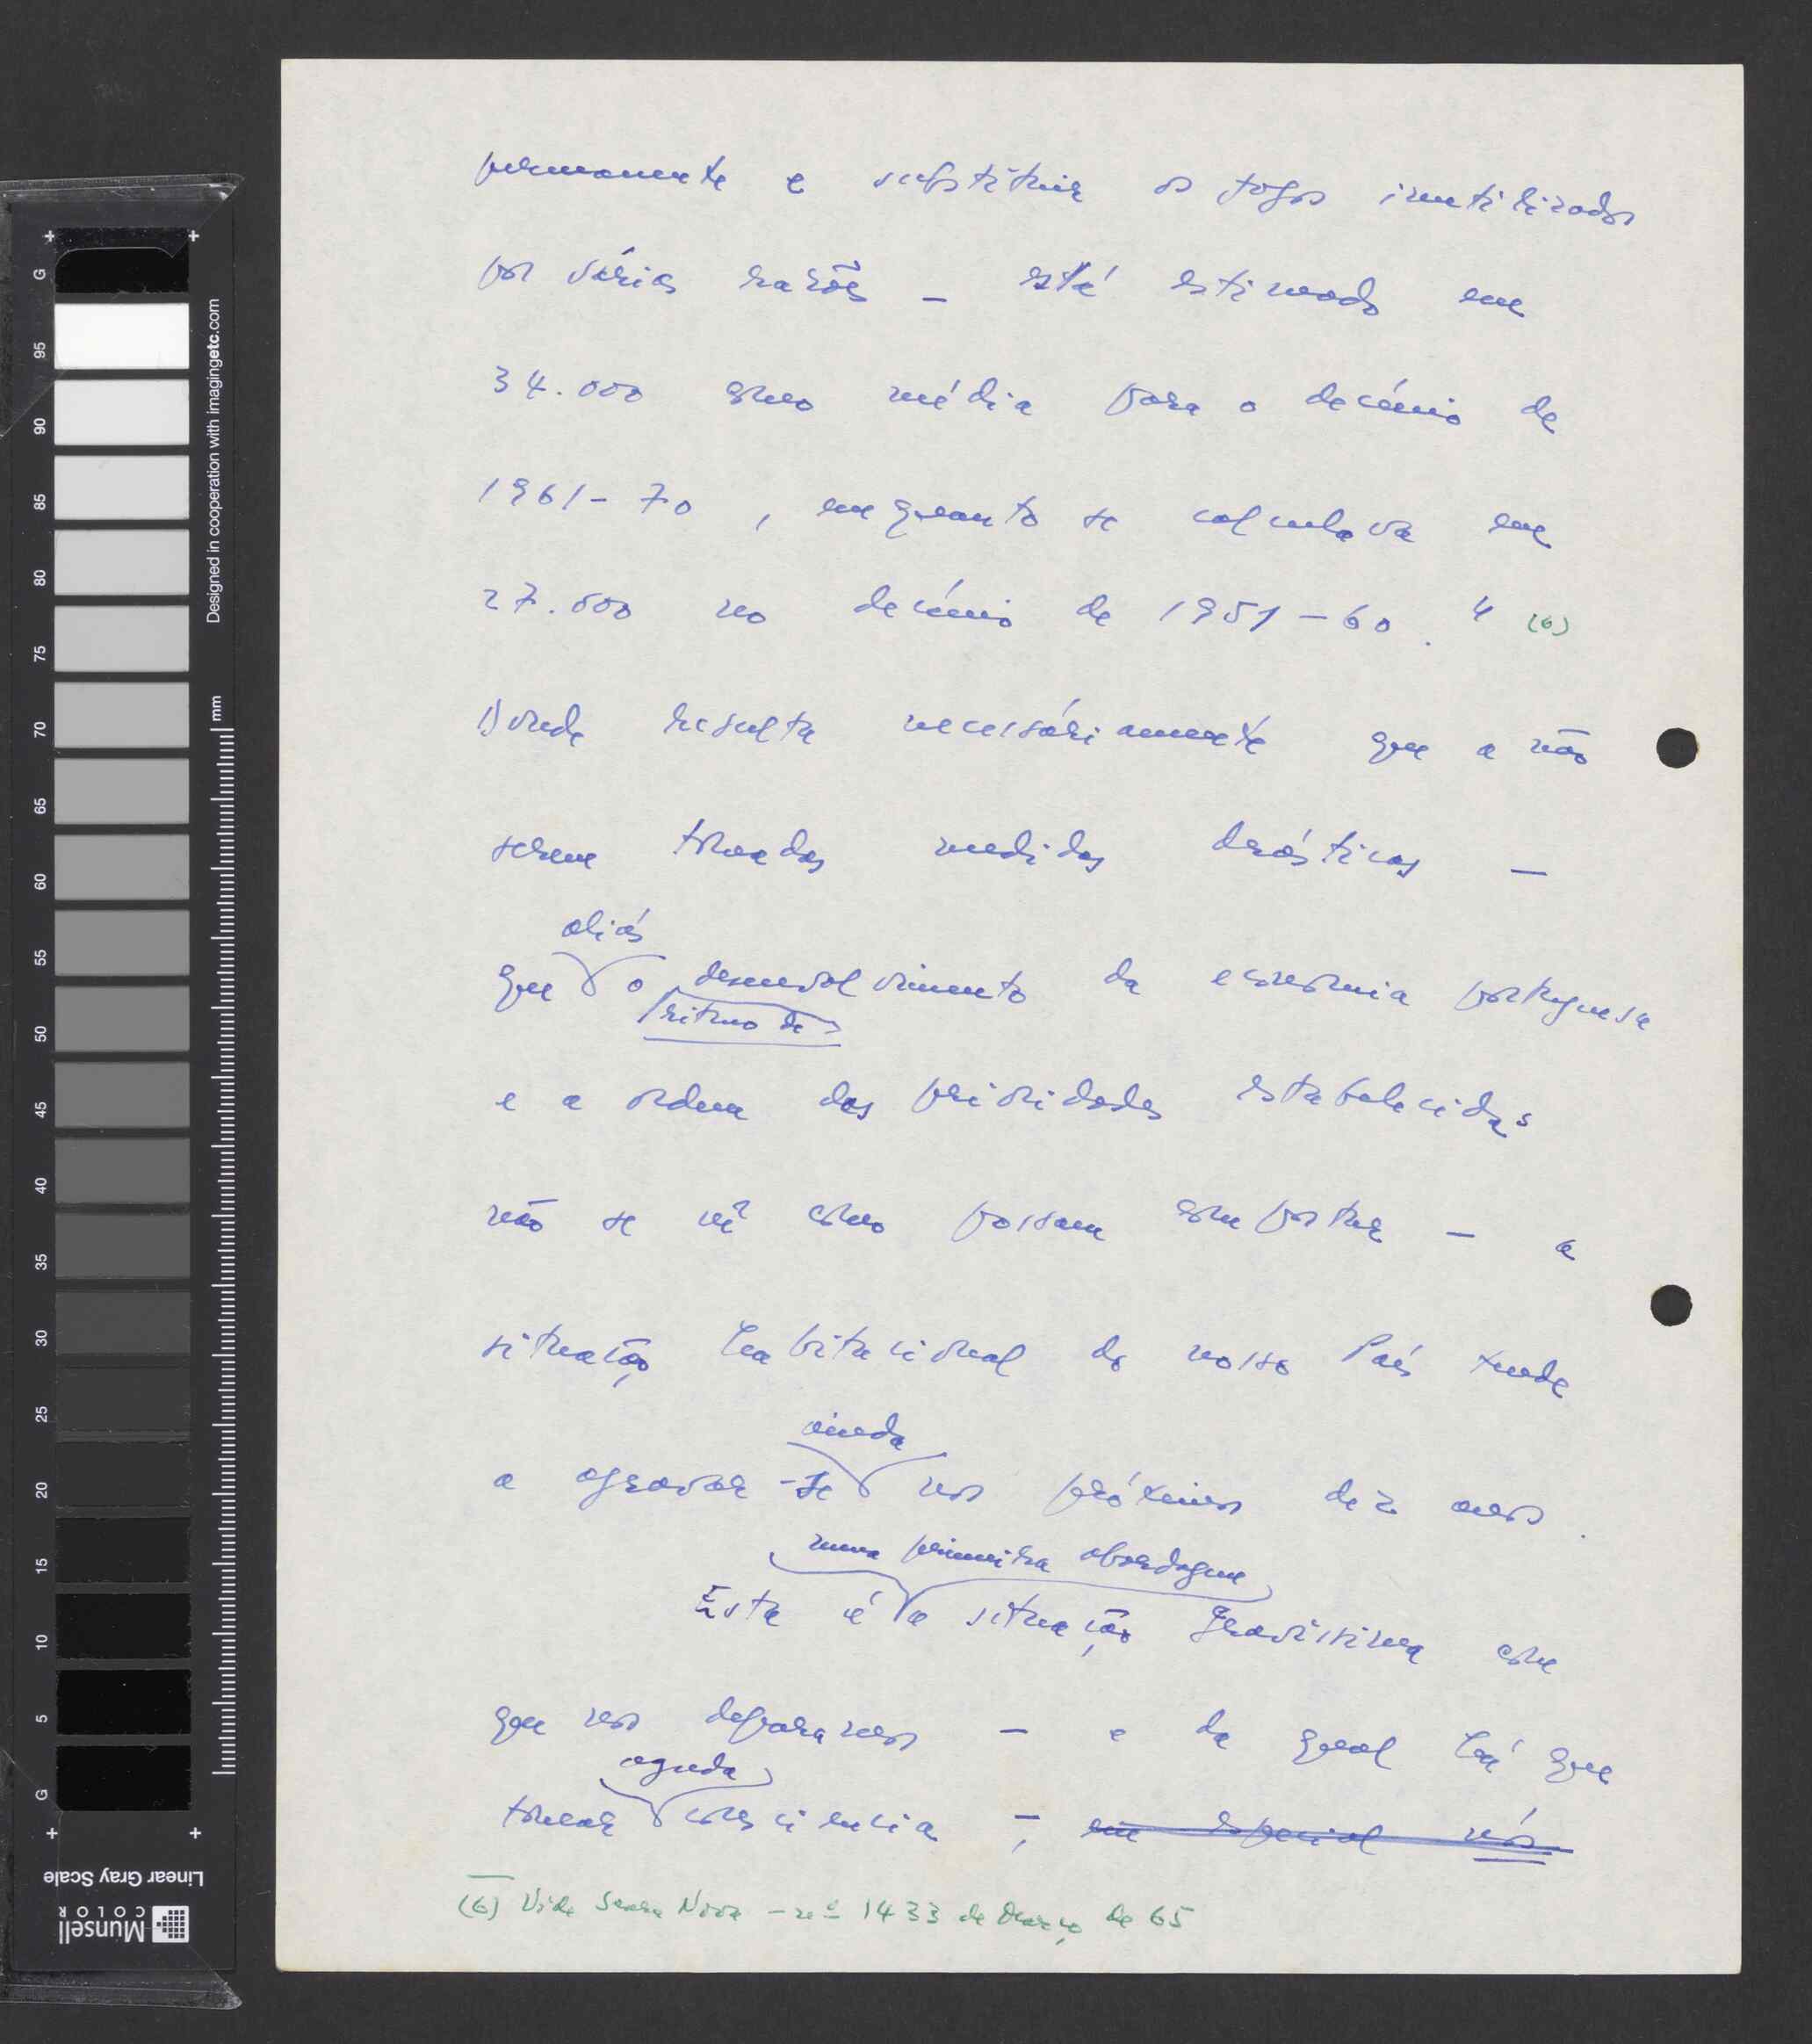 permanente e substituir os fogos inutilizados
por várias razões – está estimado em
34.000 como média para o decénio de
1961-70, enquanto se calculava em
27.000 no decénio de 1951-60." (6)
Donde resulta necessáriamente que a não
serem tomadas medidas drásticas –
aliás
que o desenvolvimento da economia portuguesa
ritmo de
e a ordem das prioridades estabelecidas
não se vê como possam comportar – a
situação habitacional do nosso País tende
ainda
a agravar-se nos próximos dez anos.
numa primeira abordagem
Esta é a situação gravíssima com
que nos deparamos – e da qual há que
aguda
tomar consciencia –, em especial nós
(6) Vide Seara Nova – nº 1433 de Março de 65
G
95
90
85
80
75
70
65
60
55
50
45
40
35
30
25
20
15
10
5
G
Designed in cooperation with imagingetc.com
mm
Linear Gray Scale
Munsell
COLOR